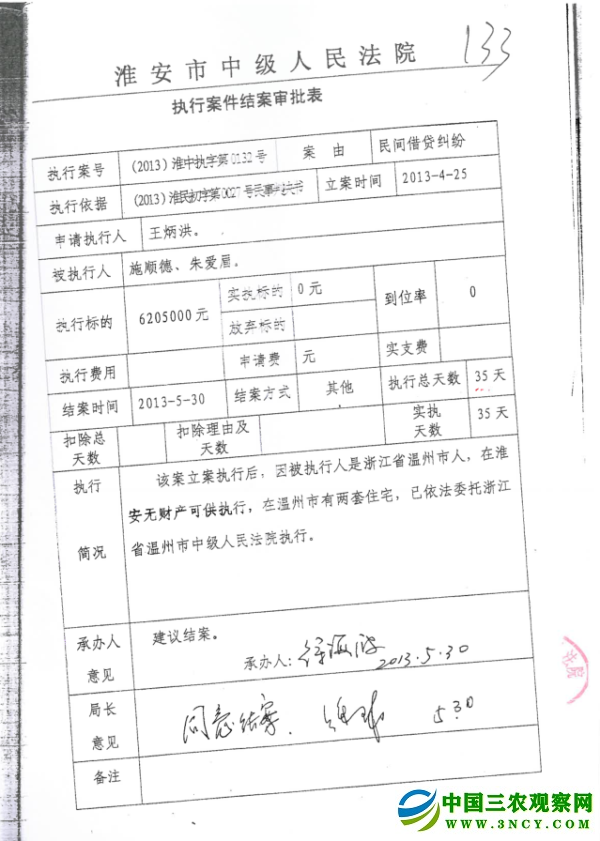 133
淮安市中级人民法院
执行案件结案审批表
执行案号 (2013)淮中执字第0132号 案由 民间借贷纠纷
执行依据 (2013)淮民初字第0027号民事 立案时间 2013-4-25
申请执行人 王炳洪。
被执行人 施顺德、朱爱眉。
执行标的 6205000元 实执标的 0元 到位率 0
放弃标的
执行费用 申请费 元 实支费
结案时间 2013-5-30 结案方式 其他 执行总天数 35天
扣除总天数 扣除理由及天数 实执天数 35天
执行简况
该案立案执行后，因被执行人是浙江省温州市人，在淮
安无财产可供执行，在温州市有两套住宅，已依法委托浙江
省温州市中级人民法院执行。
承办人意见 建议结案。
承办人: 2013.5.30
局长意见 同意结案. 5.30
备注
法院
中国三农观察网
WWW.3NCY.COM